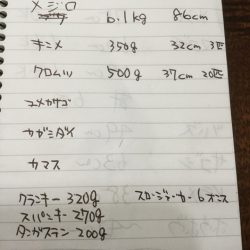 メジロ 6.1kg 86cm
キンメ 350g 32cm 3匹
クロムツ 500g 37cm 20匹
ユメカサゴ
カガミダイ
カマス
クランキー 320g スロージャーカー 6オンス
スパンキー 270g
タングステン 200g